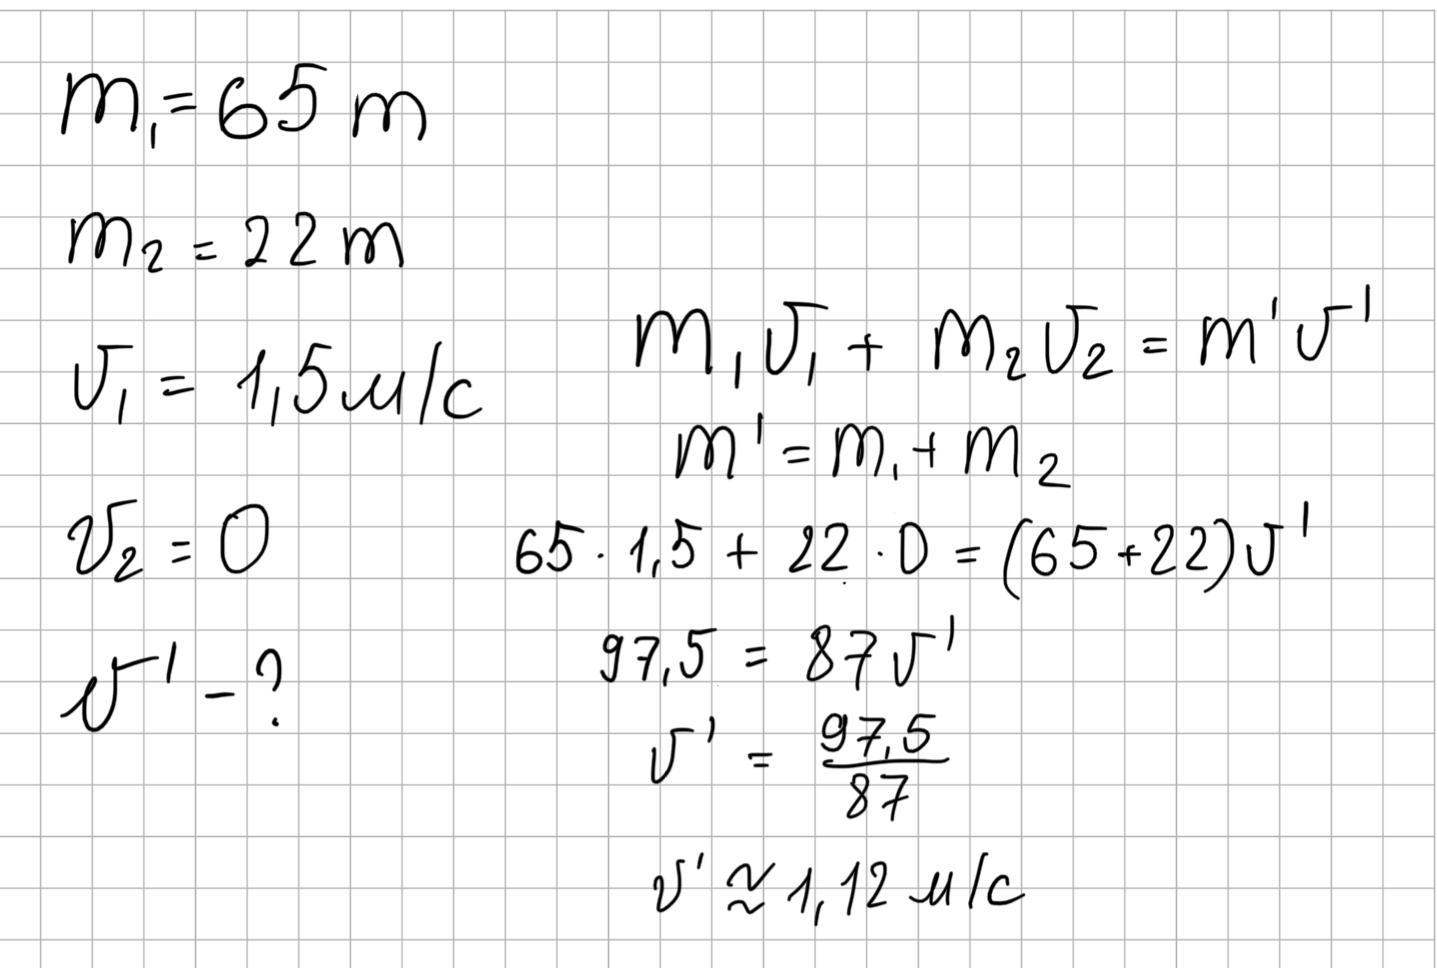 m₁ = 65 т
m₂ = 22 т
v₁ = 1,5 м/с
v₂ = 0
v' - ?
m₁v₁ + m₂v₂ = m'v'
m' = m₁ + m₂
65 · 1,5 + 22 · 0 = (65 + 22)v'
97,5 = 87v'
v' = 97,5/87
v' ≈ 1,12 м/с